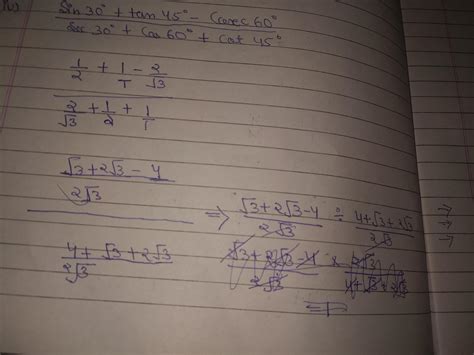 Sin 30° + tan 45° - Cosec 60°
Sec 30° + Cos 60° + Cot 45°
1/2 + 1/1 - 2/√3
2/√3 + 1/2 + 1/1
√3 + 2√3 - 4
2√3
4 + √3 + 2√3
2√3
⇒ √3 + 2√3 - 4 / 2√3 ÷ 4 + √3 + 2√3 / 2√3
√3 + 2√3 - 4 / 2√3 × 2√3 / 4 + √3 + 2√3